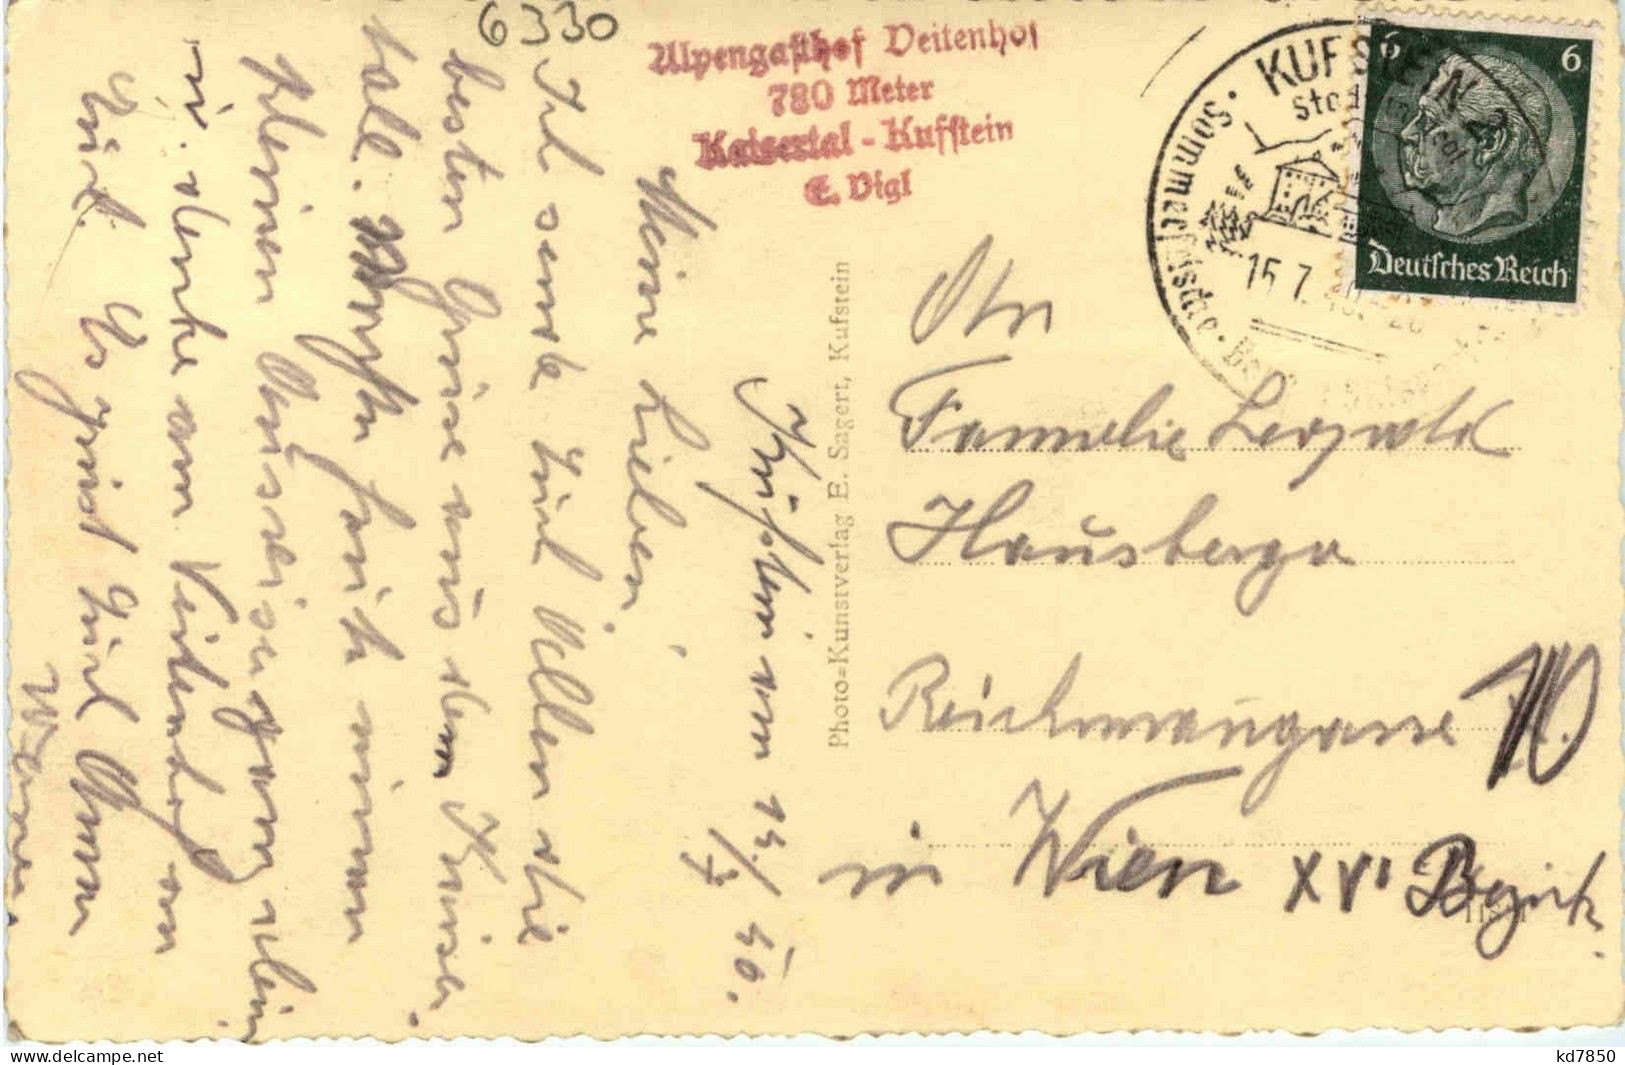 6330
Alpengasthof Veitenhof
780 Meter
Kaisertal - Kufstein
E. Vigl
KUFSTEIN 2
Sommerfrische
15.7.
6
6
Deutsches Reich
Kufstein am 14./7. 40.
Meine Lieben!
Ich sende Euch Allen die
besten Grüsse aus dem Kaiser-
tale. heute einen
kleinen
u. denke am Veitenhof an
Euch. Es grüsst Euch
Photo=Kunstverlag E. Sagert, Kufstein
An
Familie Leopold
Hausberger
Reichmanngasse 10
in Wien XVI Bezirk.
kd7850